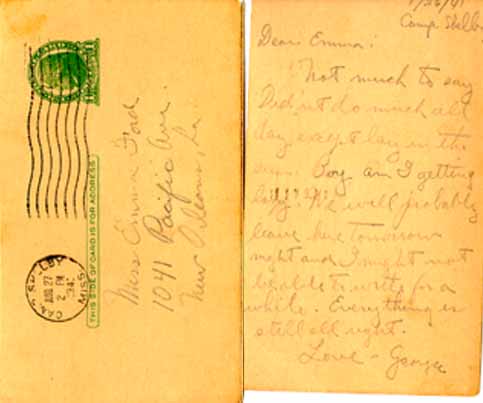 THIS SIDE OF CARD IS FOR ADDRESS
CAMP SHELBY
AUG 27
2 PM
MISS.
Miss Emma Ford
1041 Pacific Ave.
New Orleans, La
Camp Shelby
Dear Emma:
Not much to say
Didn't do much all
day except lay in the
sun. Boy am I getting
lazy. We will probably
leave here tomorrow
night and I might not
be able to write for a
while. Everything is
still all right.
Love - George